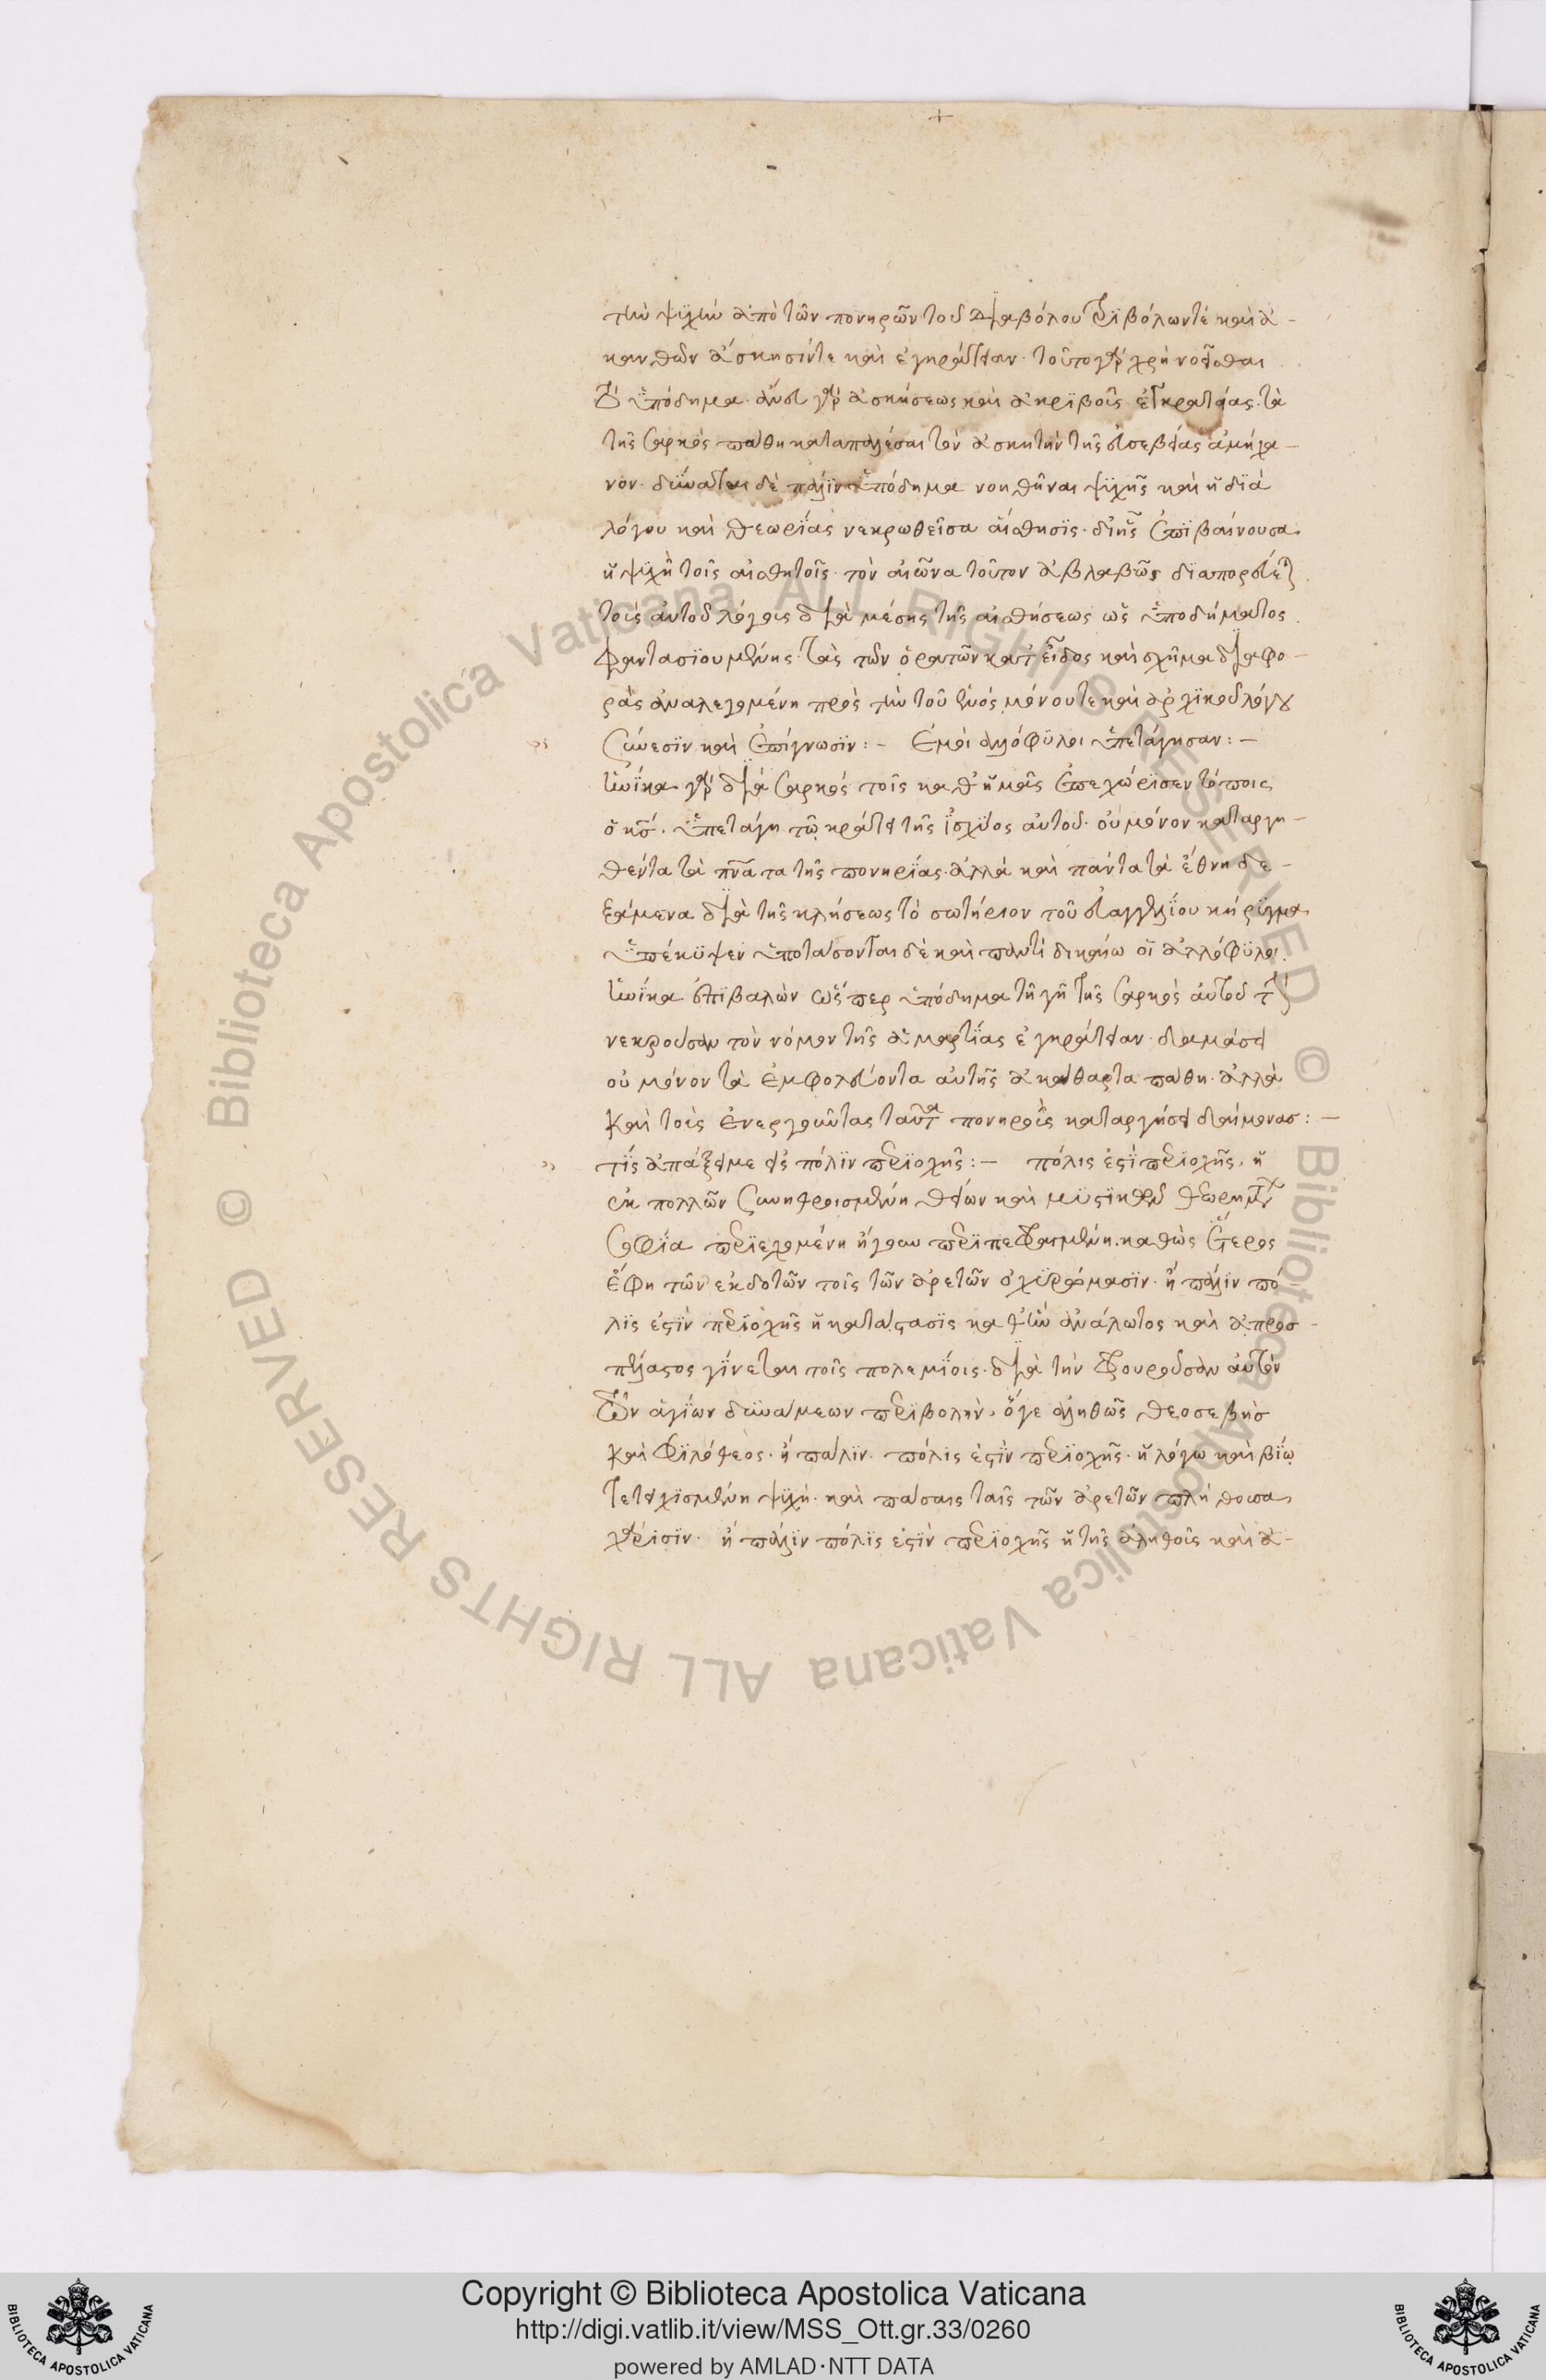 τὴν ψυχὴν ἀπὸ τῶν πονηρῶν τοῦ διαβόλου τριβόλων τὲ καὶ ἀ-
κανθῶν ἄσκησίν τε καὶ ἐγκράτειαν. τοῦτο γὰρ χρὴ νοεῖσθαι
τὸ ὑπόδημα. ἄνευ γὰρ ἀσκήσεως καὶ ἀκριβοῦς ἐγκρατείας. τὰ
τῆς σαρκὸς πάθη καταπαλέσαι τὸν ἀσκητὴν τῆς εὐσεβείας ἀμήχα-
νον. δύναται δὲ πάλιν ὑπόδημα νοηθῆναι ψυχῆς καὶ ἡ διὰ
λόγου καὶ θεωρίας νεκρωθεῖσα αἴσθησις. δι' ἧς ἐπιβαίνουσα
ἡ ψυχὴ τοῖς αἰσθητοῖς. τὸν αἰῶνα τοῦτον ἀβλαβῶς διαπορεύεται
τοὺς αὐτοῦ λόγοις διὰ μέσης τῆς αἰσθήσεως ὡς ὑποδήματος
φαντασιουμένης. τὰς τῶν ὁρατῶν κατ' εἶδος καὶ σχῆμα διαφο-
ρὰς ἀναλεγομένη πρὸς τὴν τοῦ ἑνὸς μόνου τε καὶ ἀρχικοῦ λόγου
σύνεσιν καὶ ἐπίγνωσιν :- Ἐμοὶ ἀλλόφυλοι ὑπετάγησαν :-
ἡνίκα γὰρ διὰ σαρκὸς τοῖς καθ' ἡμᾶς ἐπεχώρισεν τόποις
ὁ κς. ὑπετάγη τῷ κράτει τῆς ἰσχύος αὐτοῦ. οὐ μόνον καταργη-
θέντα τὰ πνατα τῆς πονηρίας. ἀλλὰ καὶ πάντα τὰ ἔθνη δε-
ξάμενα διὰ τῆς κλήσεως τὸ σωτήριον τοῦ εὐαγγελίου κήρυγμα
ὑπέκυψεν ὑποτάσονται δὲ καὶ παντὶ δικαίω οἱ ἀλλόφυλοι.
ἡνίκα ἐπιβαλὼν ὥσπερ ὑπόδημα τῇ γῇ τῆς σαρκὸς αὐτοῦ τὴν
νεκροῦσαν τὸν νόμον τῆς ἁμαρτίας ἐγκράτειαν. δαμάσει
οὐ μόνον τὰ ἐμφολεύοντα αὐτῆς ἀκάθαρτα πάθη. ἀλλὰ
καὶ τοὺς ἐνεργοῦντας ταῦτα πονηροὺς καταργήσει δαίμονας :-
τίς ἀπάξει με εἰς πόλιν περιοχῆς :- πόλις ἐστὶ περιοχῆς, ἡ
ἐκ πολλῶν συνηθροισμένη θείων καὶ μυστικῶν θεωρημάτων
σοφία περιεχομένη ἤγουν περιπεφραγμένη. καθὼς ἕτερος
ἔφη τῶν ἐκδοτῶν τοῖς τῶν ἀρετῶν ὀχυρώμασιν. ἢ πάλιν πό
λις ἐστὶν περιοχῆς ἡ κατάστασις καθ' ἣν ἀνάλωτος καὶ ἀπροσ-
πέλαστος γίνεται τοῖς πολεμίοις. διὰ τὴν φρουροῦσαν αὐτὸν
τῶν ἁγίων δυνάμεων περιβολὴν. ὅγε ἀληθῶς θεοσεβὴς
καὶ φιλόθεος. ἢ πάλιν. πόλις ἐστὶν περιοχῆς. ἡ λόγω καὶ βίῳ
τετειχισμένη ψυχὴ. καὶ πάσαις ταῖς τῶν ἀρετῶν πλήθουσα
χάρισιν. ἢ πάλιν πόλις ἐστὶν περιοχῆς ἡ τῆς ἀληθοῦς καὶ ἀ-
Copyright © Biblioteca Apostolica Vaticana
http://digi.vatlib.it/view/MSS_Ott.gr.33/0260
powered by AMLAD·NTT DATA
BIBLIOTECA APOSTOLICA VATICANA
BIBLIOTECA APOSTOLICA VATICANA
© Biblioteca Apostolica Vaticana ALL RIGHTS RESERVED © Biblioteca Apostolica Vaticana ALL RIGHTS RESERVED